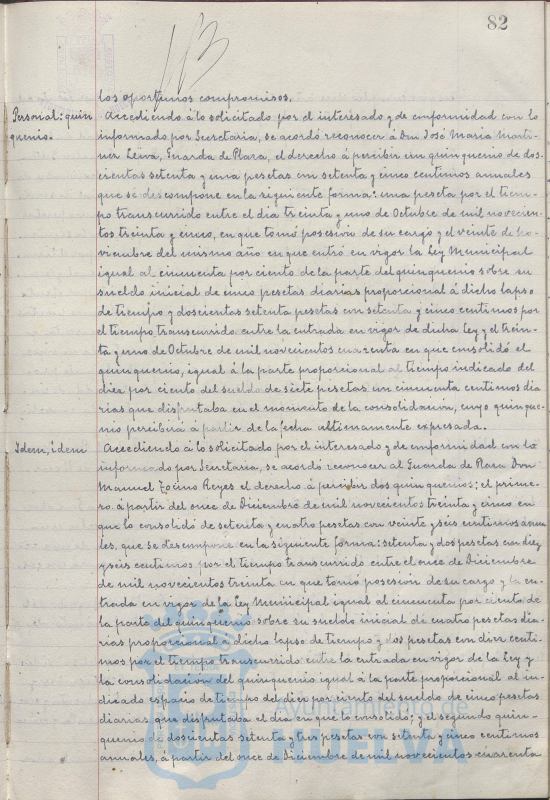 82
113
los oportunos compromisos.
Personal: quin
quenio.
Accediendo á lo solicitado por el interesado y de conformidad con lo
informado por Secretaría, se acordó reconocer á Don José María Marti-
nez Leiva, Guarda de Plaza, el derecho á percibir un quinquenio de dos-
cientas setenta y una pesetas con setenta y cinco centimos anuales
que se descompone en la siguiente forma: una peseta por el tiem-
po transcurrido entre el dia treinta y uno de Octubre de mil novecien-
tos treinta y cinco, en que tomó posesión de su cargo y el veinte de No-
viembre del mismo año en que entró en vigor la Ley Municipal
igual al cincuenta por ciento de la parte del quinquenio sobre su
sueldo inicial de cinco pesetas diarias proporcional á dicho lapso
de tiempo y doscientas setenta pesetas con setenta y cinco centimos por
el tiempo transcurrido entre la entrada en vigor de dicha Ley y el trein-
ta y uno de Octubre de mil novecientos cuarenta en que consolidó el
quinquenio, igual á la parte proporcional al tiempo indicado del
diez por ciento del sueldo de siete pesetas con cincuenta centimos dia
rias que disfrutaba en el momento de la consolidación, cuyo quinque-
nio percibirá á partir de la fecha ultimamente expresada.
Idem, idem
Accediendo á lo solicitado por el interesado y de conformidad con lo
informado por Secretaría, se acordó reconocer al Guarda de Plaza Don
Manuel Tocino Reyes el derecho á percibir dos quinquenios; el prime-
ro á partir del once de Diciembre de mil novecientos treinta y cinco en
que lo consolidó de setenta y cuatro pesetas con veinte y seis centimos anua
les, que se descompone en la siguiente forma: setenta y dos pesetas con diez
y seis centimos por el tiempo transcurrido entre el once de Diciembre
de mil novecientos treinta en que tomó posesión de su cargo y la en-
trada en vigor de la Ley Municipal igual al cincuenta por ciento de
la parte del quinquenio sobre su sueldo inicial de cuatro pesetas dia-
rias proporcional á dicho lapso de tiempo y dos pesetas con diez centi-
mos por el tiempo transcurrido entre la entrada en vigor de la Ley y
la consolidación del quinquenio igual á la parte proporcional al in-
dicado espacio de tiempo del diez por ciento del sueldo de cinco pesetas
diarias que disfrutaba el dia en que lo consolido; y el segundo quin-
quenio de doscientas setenta y tres pesetas con setenta y cinco centimos
anuales, á partir del once de Diciembre de mil novecientos cuarenta
Ayuntamiento de
HUELVA